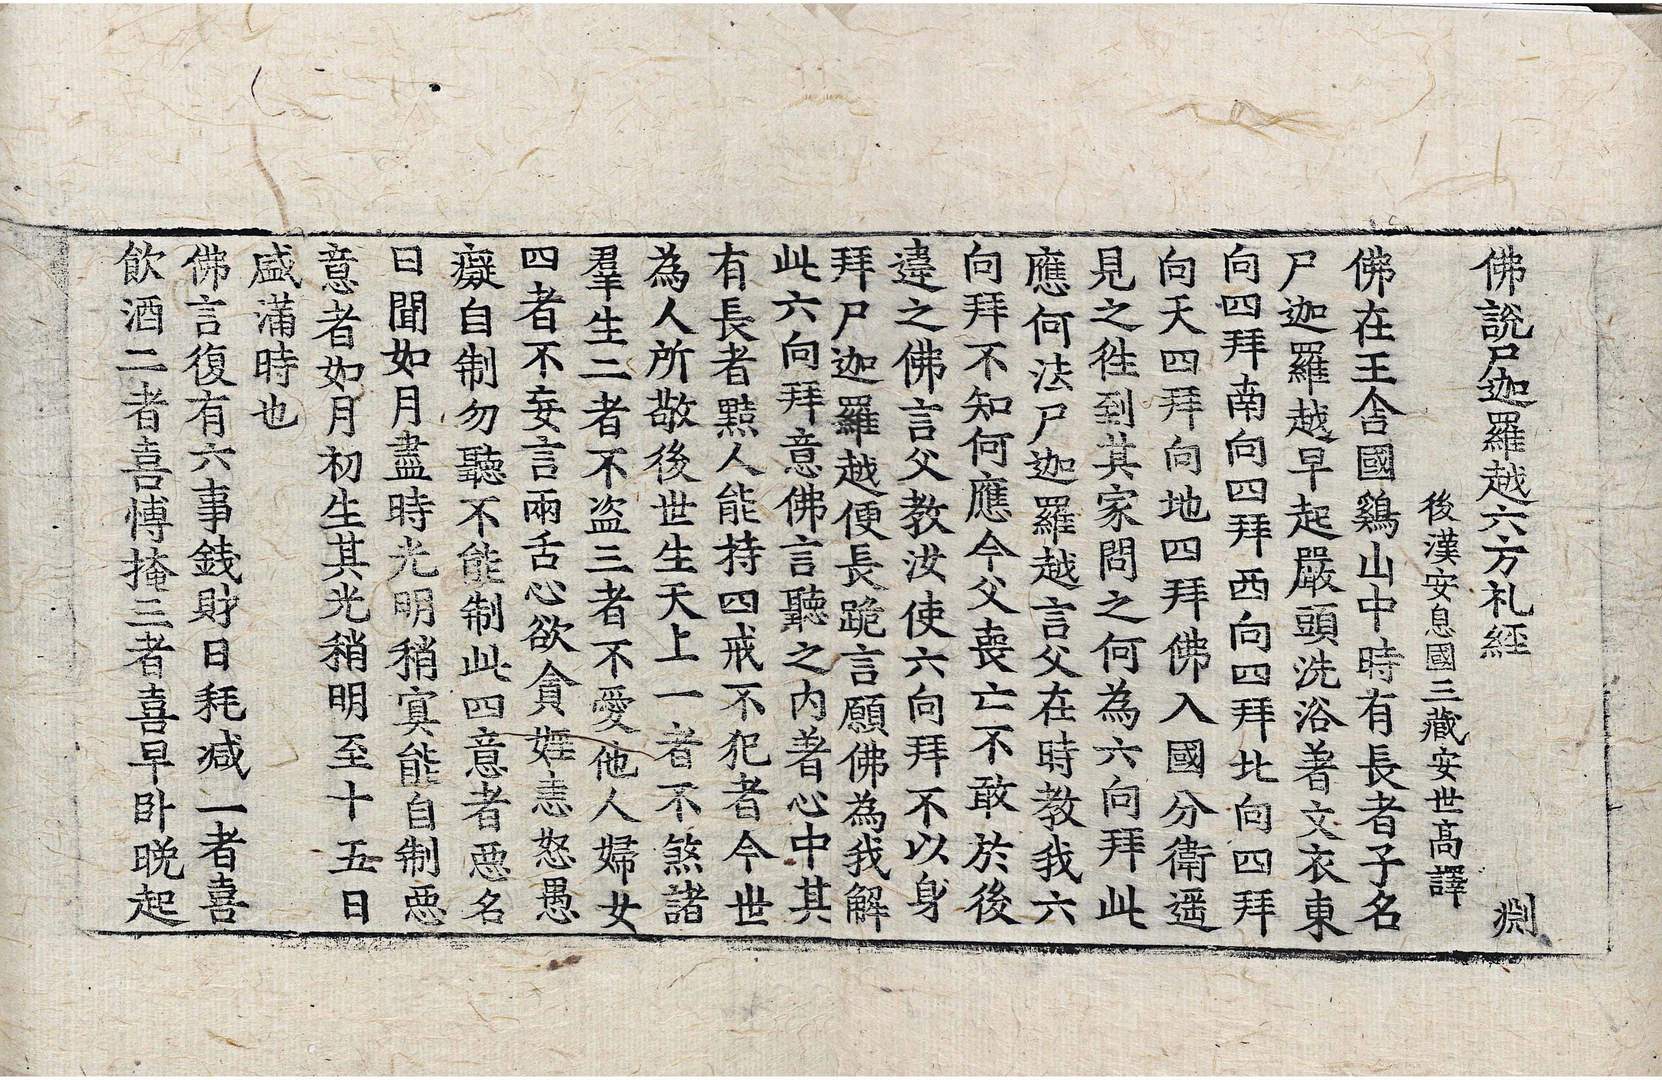 佛說尸迦羅越六方礼經 渊
後漢安息國三藏安世高譯
佛在王舍國鷄山中時有長者子名
尸迦羅越早起嚴頭洗浴著文衣東
向四拜南向四拜西向四拜北向四拜
向天四拜向地四拜佛入國分衛遥
見之徃到其家問之何為六向拜此
應何法尸迦羅越言父在時教我六
向拜不知何應今父喪亡不敢於後
違之佛言父教汝使六向拜不以身
拜尸迦羅越便長跪言願佛為我解
此六向拜意佛言聽之内著心中其
有長者黠人能持四戒不犯者今世
為人所敬後世生天上一者不煞諸
羣生二者不盗三者不愛他人婦女
四者不妄言兩舌心欲貪婬恚怒愚
癡自制勿聽不能制此四意者惡名
日聞如月盡時光明稍冥能自制惡
意者如月初生其光稍明至十五日
盛滿時也
佛言復有六事錢財日耗减一者喜
飲酒二者喜愽掩三者喜早卧晚起